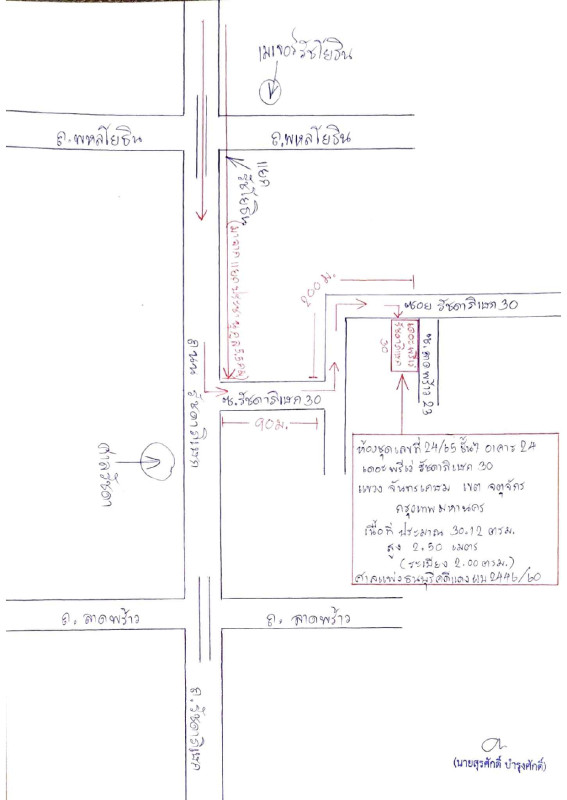 เมเจอร์รัชโยธิน
ถ.พหลโยธิน
ถ.พหลโยธิน
แยก
รัชโยธิน
200 ม.
ซอย รัชดาภิเษก 30
เดอะพรีเว่
รัชดาภิเษก
30
ซ.ลาดพร้าว 23
ซ.รัชดาภิเษก 30
90 ม.
ถนน รัชดาภิเษก
ศาลอาญา
ห้องชุดเลขที่ 24/65 ชั้น 7 อาคาร 2A
เดอะพรีเว่ รัชดาภิเษก 30
แขวง จันทรเกษม เขต จตุจักร
กรุงเทพมหานคร
เนื้อที่ ประมาณ 30.12 ตรม.
สูง 2.50 เมตร
(ระเบียง 2.00 ตรม.)
ศาลแพ่งธนบุรีคดีแดง ผบ 2446/60
ถ. ลาดพร้าว
ถ. ลาดพร้าว
ถ.รัชดาภิเษก
(นายสุรศักดิ์ บำรุงศักดิ์)